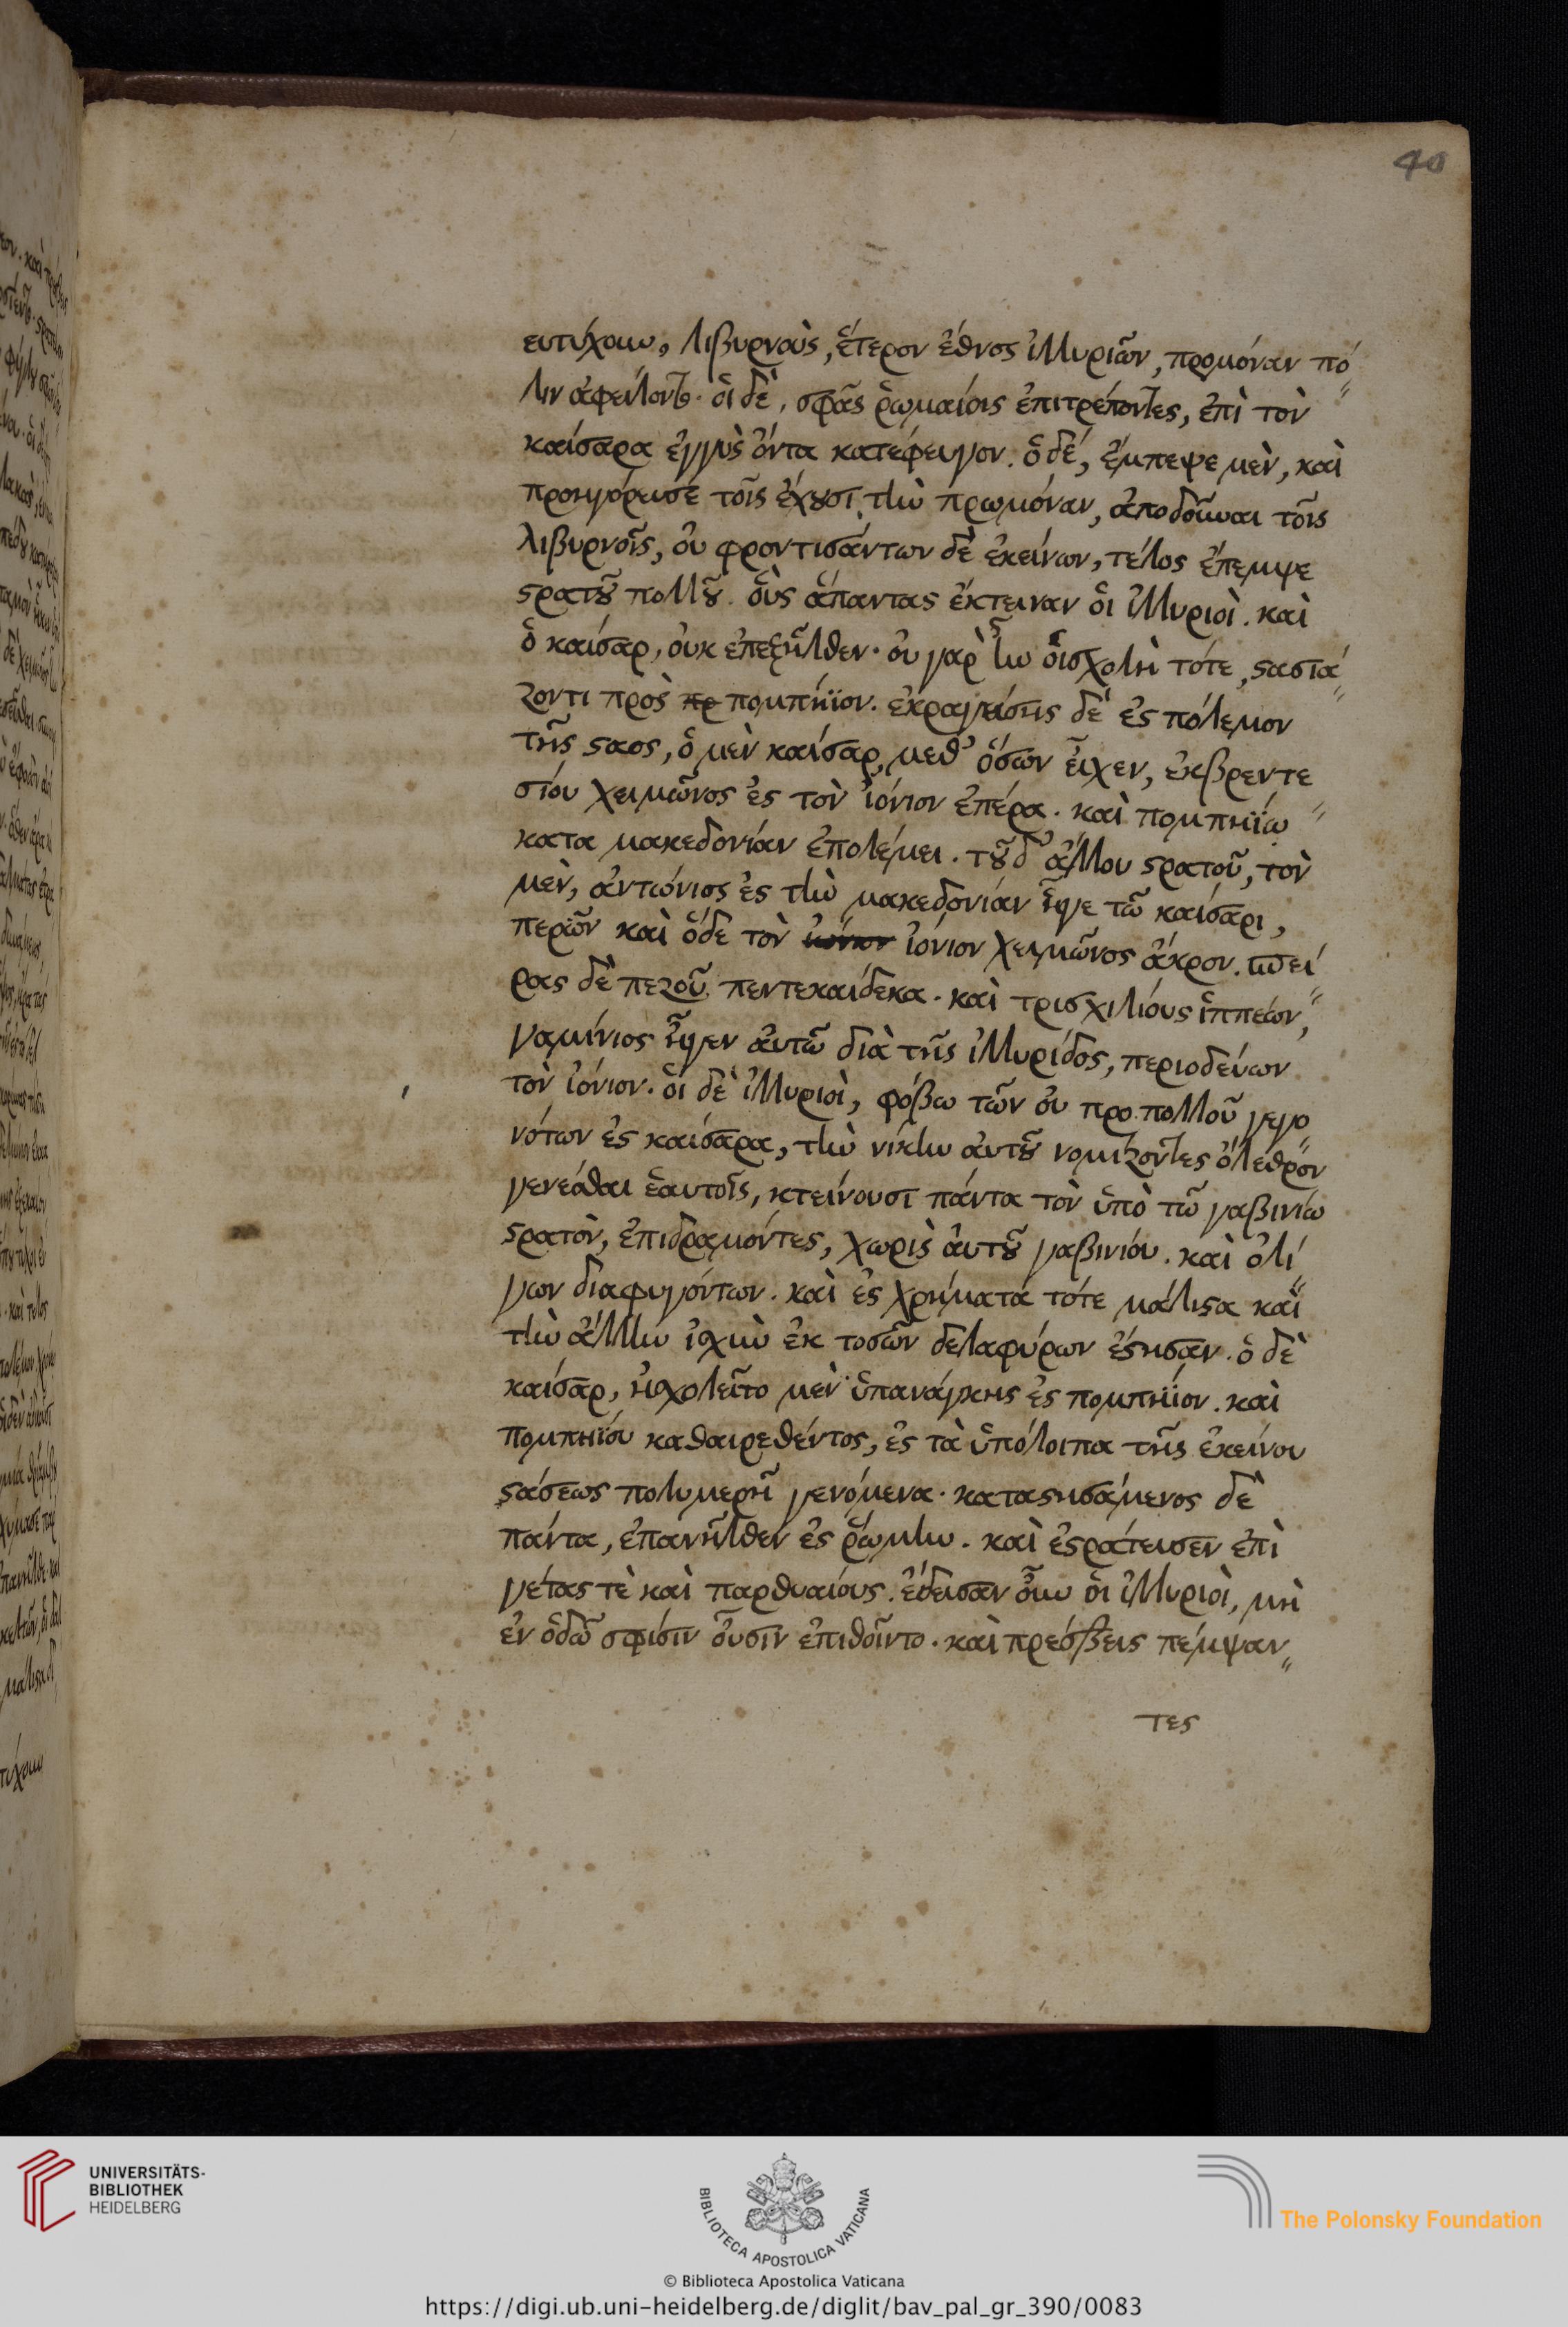 40
ευτύχουν, λιβυρνοὺς, ἕτερον ἔθνος ἰλλυριῶν, προμόναν πό
λιν ἀφείλοντο. οἱ δὲ, σφᾶς ῥωμαίοις ἐπιτρέποντες, ἐπὶ τὸν
καίσαρα ἐγγὺς ὄντα κατέφευγον. ὁ δέ, ἔμπεψε μὲν, καὶ
προηγόρευσέ τοῖς ἔχουσι τὴν πρωμόναν, ἀποδοῦναι τοῖς
λιβυρνοῖς, οὐ φροντισάντων δὲ ἐκείνων, τέλος ἔπεμψε
στρατοῦ πολλοῦ. οὓς ἅπαντας ἔκτειναν οἱ ἰλλυριοὶ. καὶ
ὁ καίσαρ, οὐκ ἐπεξῆλθεν. οὐ γὰρ ἦν οἱ σχολὴ τότε, στασιά
ζοντι πρὸς πρ πομπήϊον. ἐκραγείσης δὲ ἐς πόλεμον
τῆς σταος, ὁ μὲν καίσαρ, μεθ' ὅσων εἶχεν, ἐκ βρεντε
σίου χειμῶνος ἐς τὸν ἰόνιον ἐπέρα. καὶ πομπηΐῳ
κατα μακεδονίαν ἐπολέμει. τοῦ δ' ἄλλου στρατοῦ, τὸν
μὲν, ἀντώνιος ἐς τὴν μακεδονίαν ἦγε τῶ καίσαρι,
περῶν καὶ ὅδε τὸν ἰόνιον χειμῶνος ἄκρου. σπεί
ρας δὲ πεζοῦ πεντεκαίδεκα. καὶ τρισχιλίους ἱππέων,
γαμίνιος ἦγεν αὐτῶ διὰ τῆς ἰλλυρίδος, περιοδεύων
τὸν ἰόνιον. οἱ δὲ ἰλλυριοὶ, φόβω τῶν οὐ προ πολλοῦ γεγο
νότων ἐς καίσαρα, τὴν νίκην αὐτοῦ νομίζοντες ὄλεθρον
γενέσθαι ἑαυτοῖς, κτείνουσι πάντα τὸν ὑπὸ τῶ γαβινίω
στρατὸν, ἐπιδραμόντες, χωρὶς αὐτοῦ γαβινίου. καὶ ὀλί
γων διαφυγόντων. καὶ ἐς χρήματά τότε μάλιστα καὶ
τὴν ἄλλην ἰσχὺν ἐκ τοσῶν δε λαφύρων ἔστησαν. ὁ δὲ
καίσαρ, ἠσχολεῖτο μὲν ὑπανάγκης ἐς πομπήϊον. καὶ
πομπηΐου καθαιρεθέντος, ἐς τὰ ὑπόλοιπα τῆς ἐκείνου
στάσεως πολυμερῆ γενόμενα. καταστησάμενος δὲ
πάντα, ἐπανῆλθεν ἐς ῥώμην. καὶ ἐστράτευσεν ἐπὶ
γέτας τὲ καὶ παρθυαίους. ἔδεισαν οὖν οἱ ἰλλυριοὶ, μὴ
ἐν ὁδῶ σφίσιν οὖσιν ἐπιθοῖντο. καὶ πρέσβεις πέμψαν
τες
UNIVERSITÄTS-
BIBLIOTHEK
HEIDELBERG
BIBLIOTECA APOSTOLICA VATICANA
The Polonsky Foundation
© Biblioteca Apostolica Vaticana
https://digi.ub.uni-heidelberg.de/diglit/bav_pal_gr_390/0083